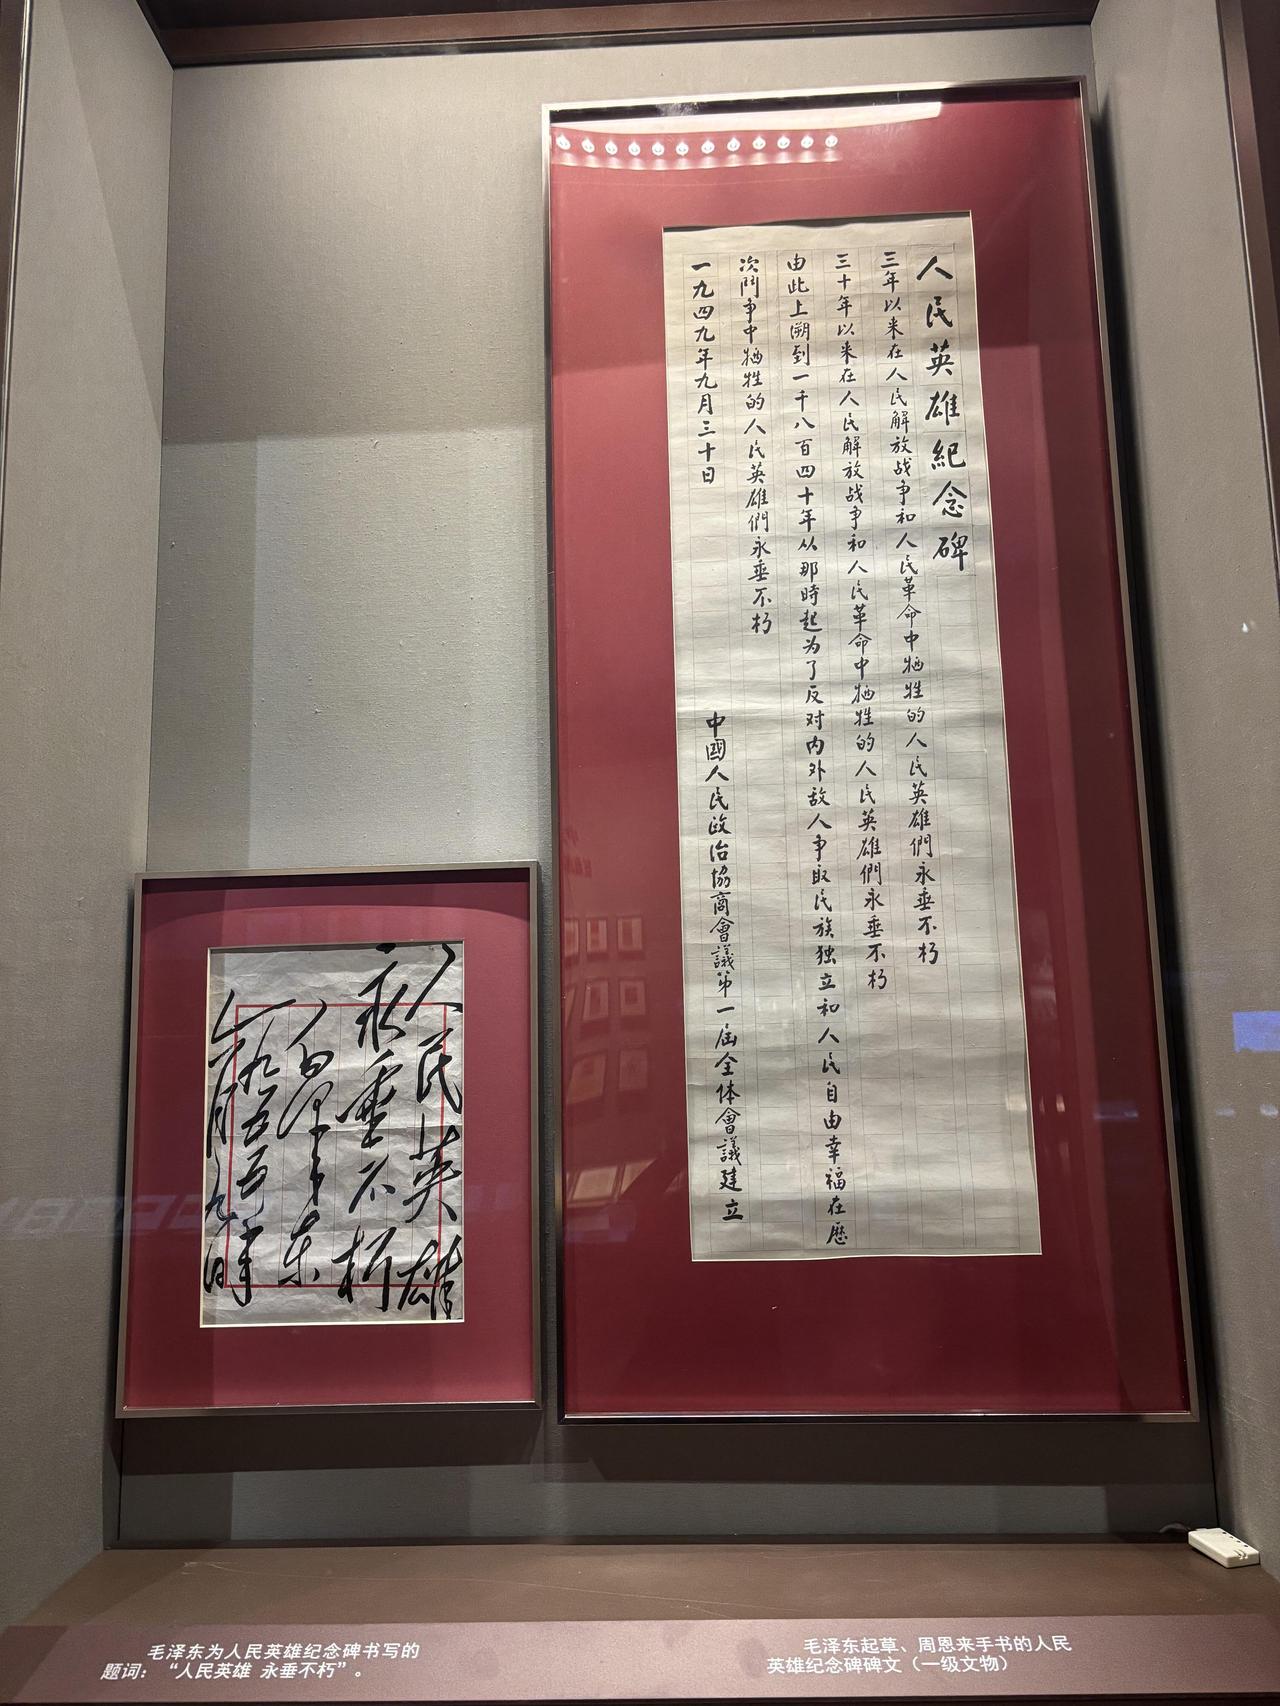 人民英雄紀念碑
三年以来在人民解放战争和人民革命中牺牲的人民英雄們永垂不朽
三十年以来在人民解放战争和人民革命中牺牲的人民英雄們永垂不朽
由此上溯到一千八百四十年从那時起为了反对内外敌人争取民族独立和人民自由幸福在歷
次鬥争中牺牲的人民英雄們永垂不朽
一九四九年九月三十日
中國人民政治協商會議第一屆全体會議建立
人民英雄
永垂不朽
毛泽东
一九五五年
六月九日
毛泽东为人民英雄纪念碑书写的
题词：“人民英雄 永垂不朽”。
毛泽东起草、周恩来手书的人民
英雄纪念碑碑文（一级文物）